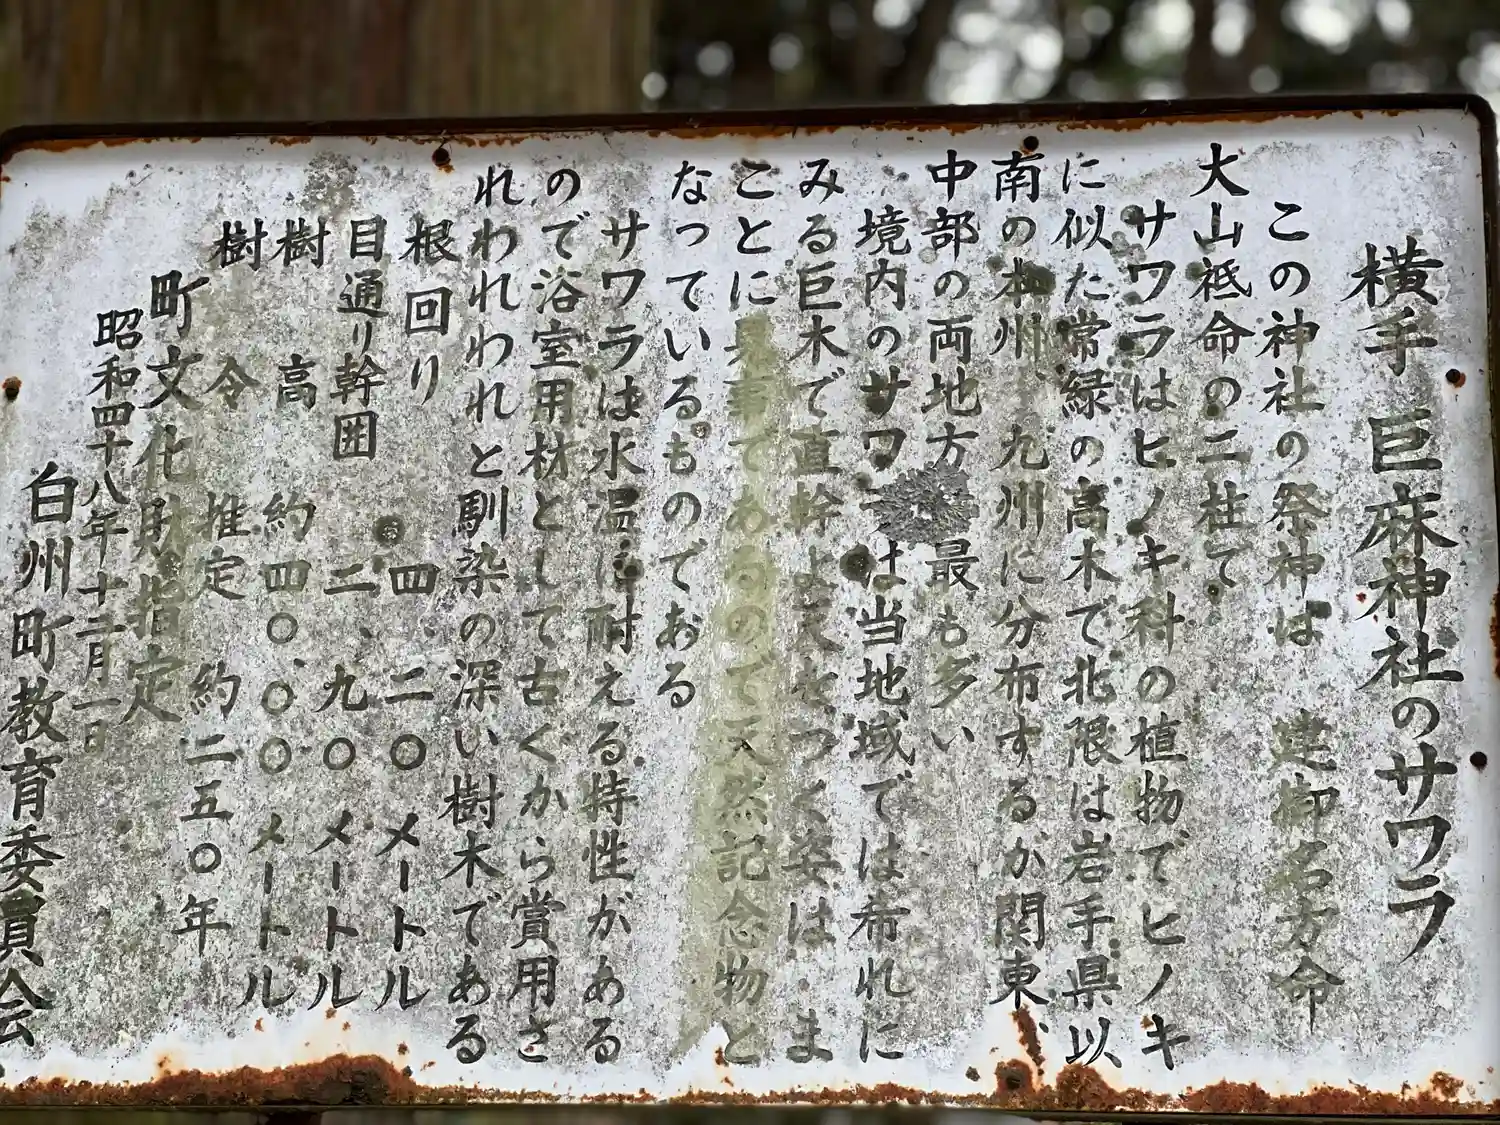 横手 巨麻神社のサワラ
この神社の祭神は 建御名方命
大山祗命の二柱で
サワラはヒノキ科の植物でヒノキ
に似た常緑の高木で北限は岩手県以
南の本州、九州に分布するが関東、
中部の両地方 最も多い
境内のサワ は当地域では布れに
みる巨木で直幹よ天をつく姿はま
ことに見事であるので天然記念物と
なっているものである
サワラは水温に耐える特性がある
ので浴室用材として古くから賞用さ
れわれわれと馴染の深い樹木である
根回り 四、二〇メートル
目通り幹囲 二、九〇メートル
樹高 約四〇、〇〇メートル
樹令 推定 約二五〇年
町文化財指定
昭和四十八年十二月一日
白州町教育委員会